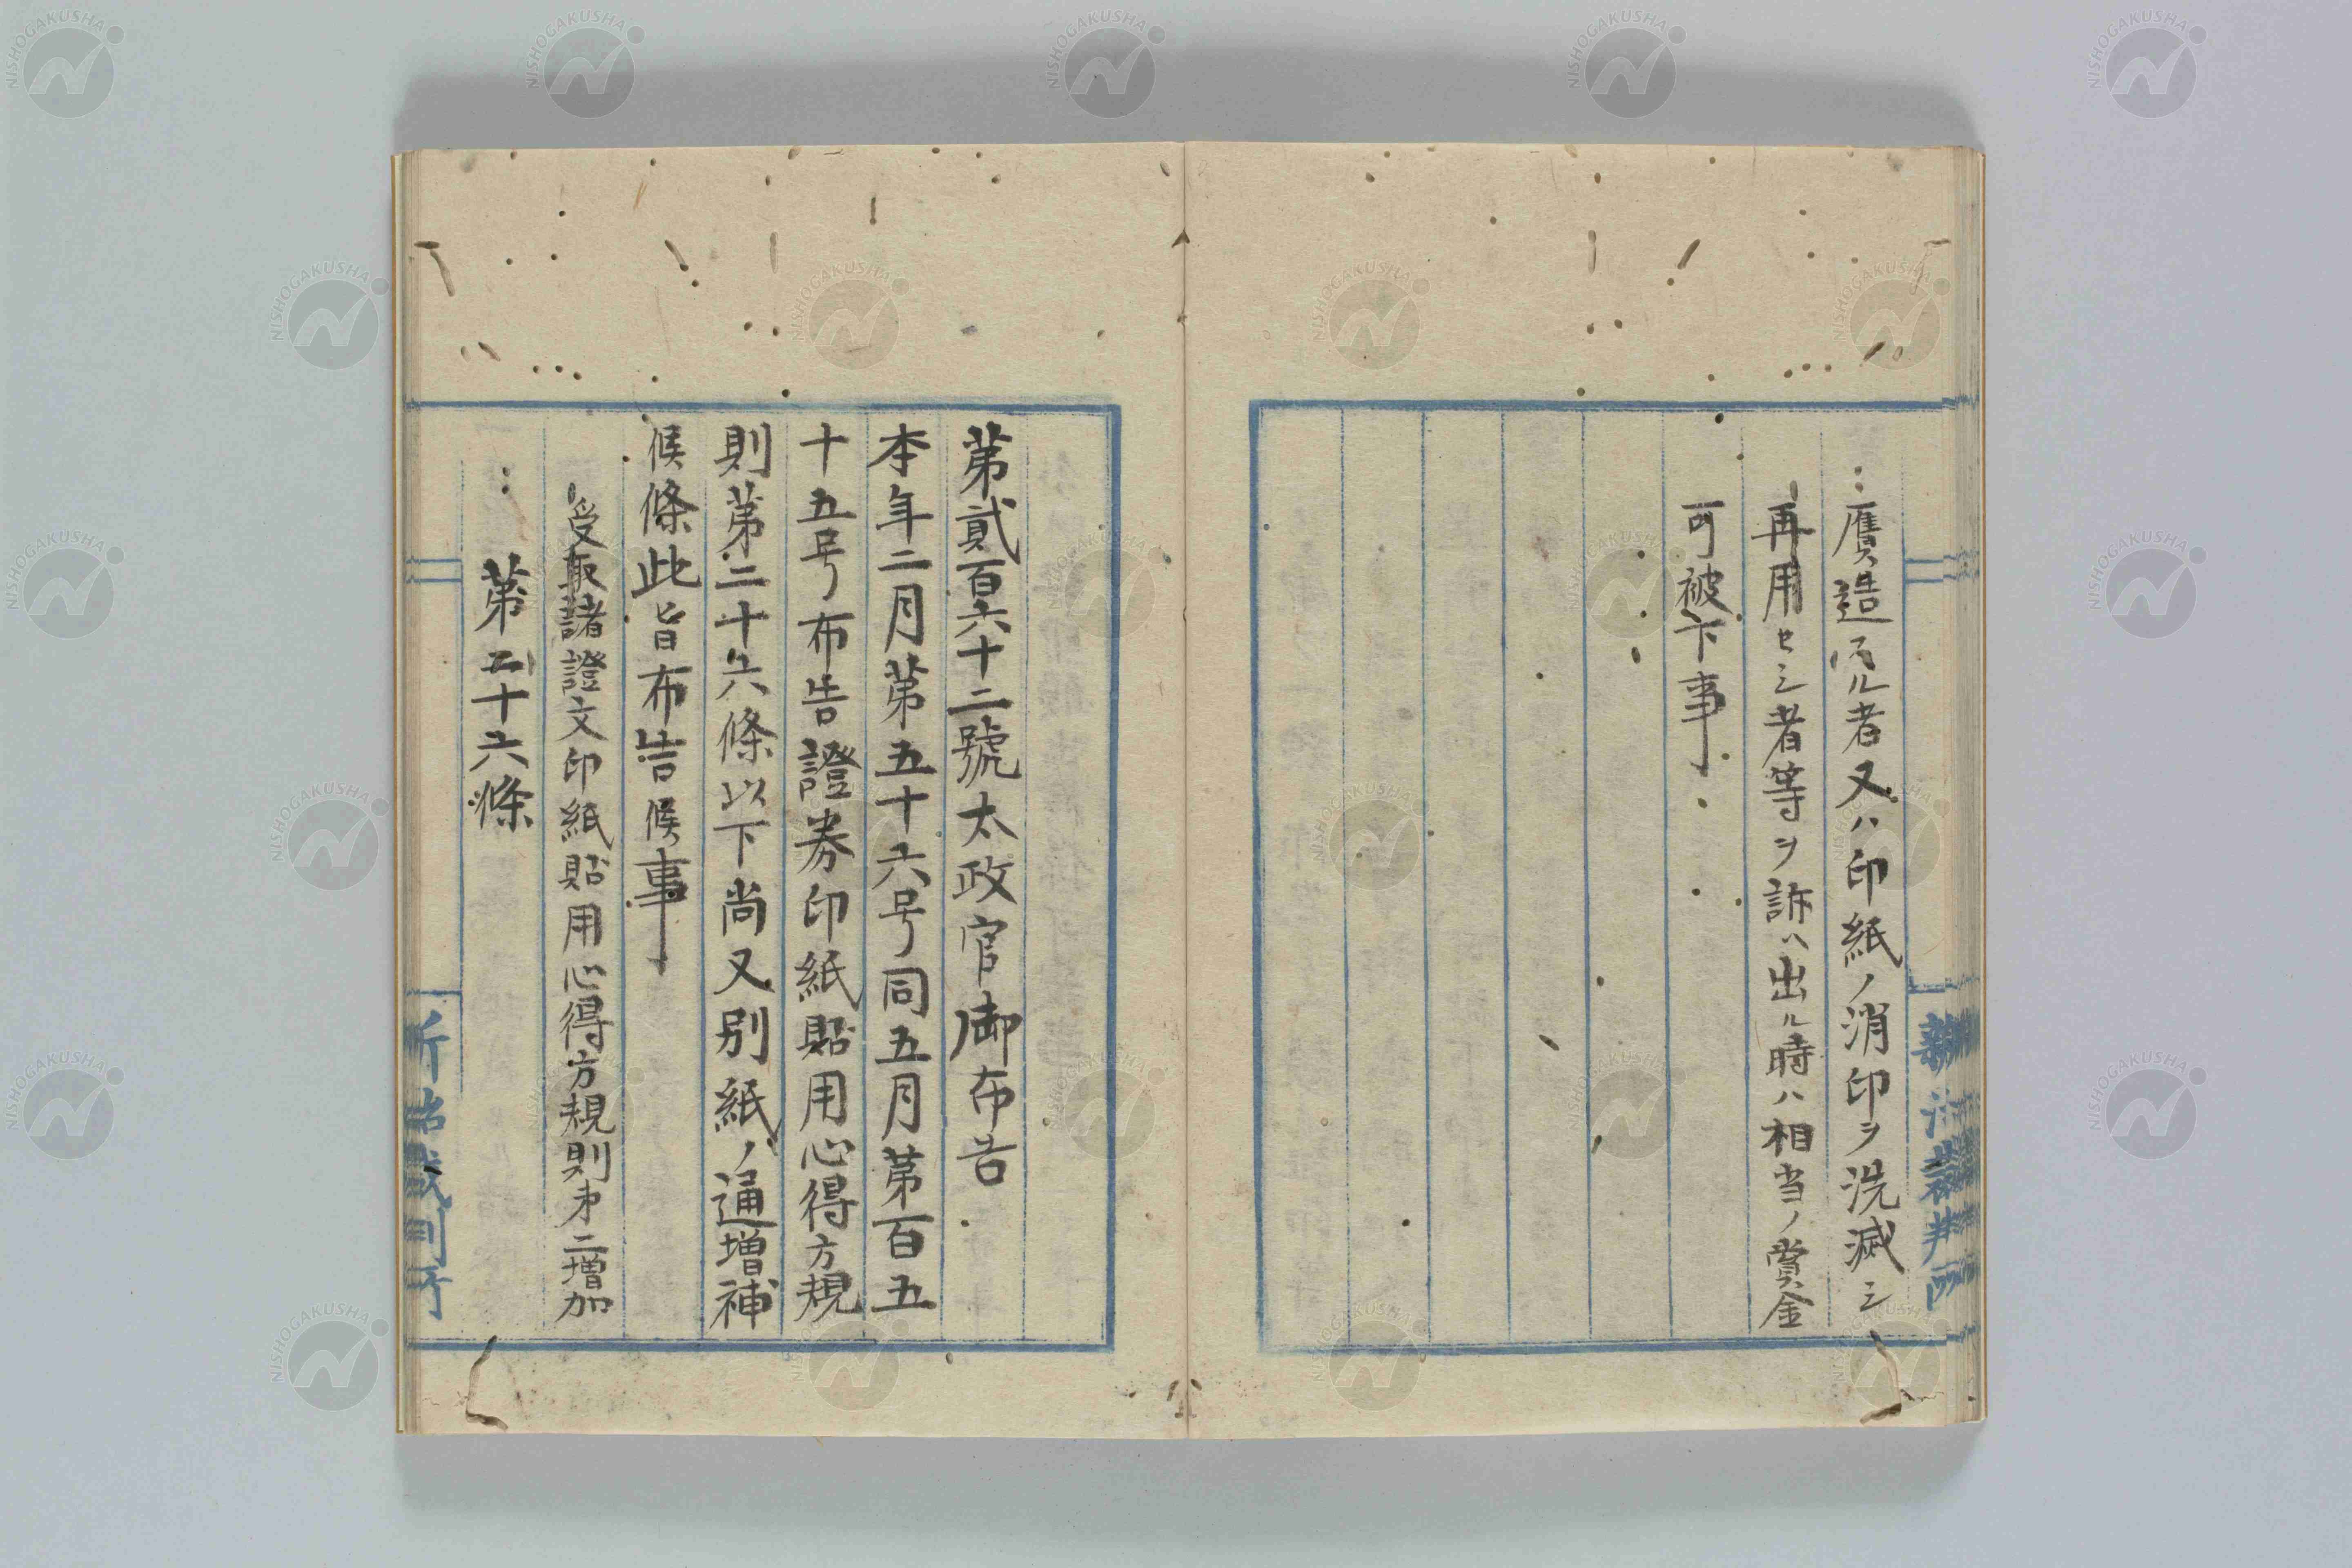 贋造スル者又ハ印紙ノ消印ヲ洗滅シ
再用セシ者等ヲ訴ヘ出ル時ハ相当ノ賞金
可被下事
第貳百六十二號太政官御布告
本年二月第五十六号同五月第百五
十五号布告證券印紙貼用心得方規
則第二十六條以下尚又別紙ノ通増補
候條此旨布告候事
受取諸證文印紙貼用心得方規則第二増加
第二十六條
NISHOGAKUSHA